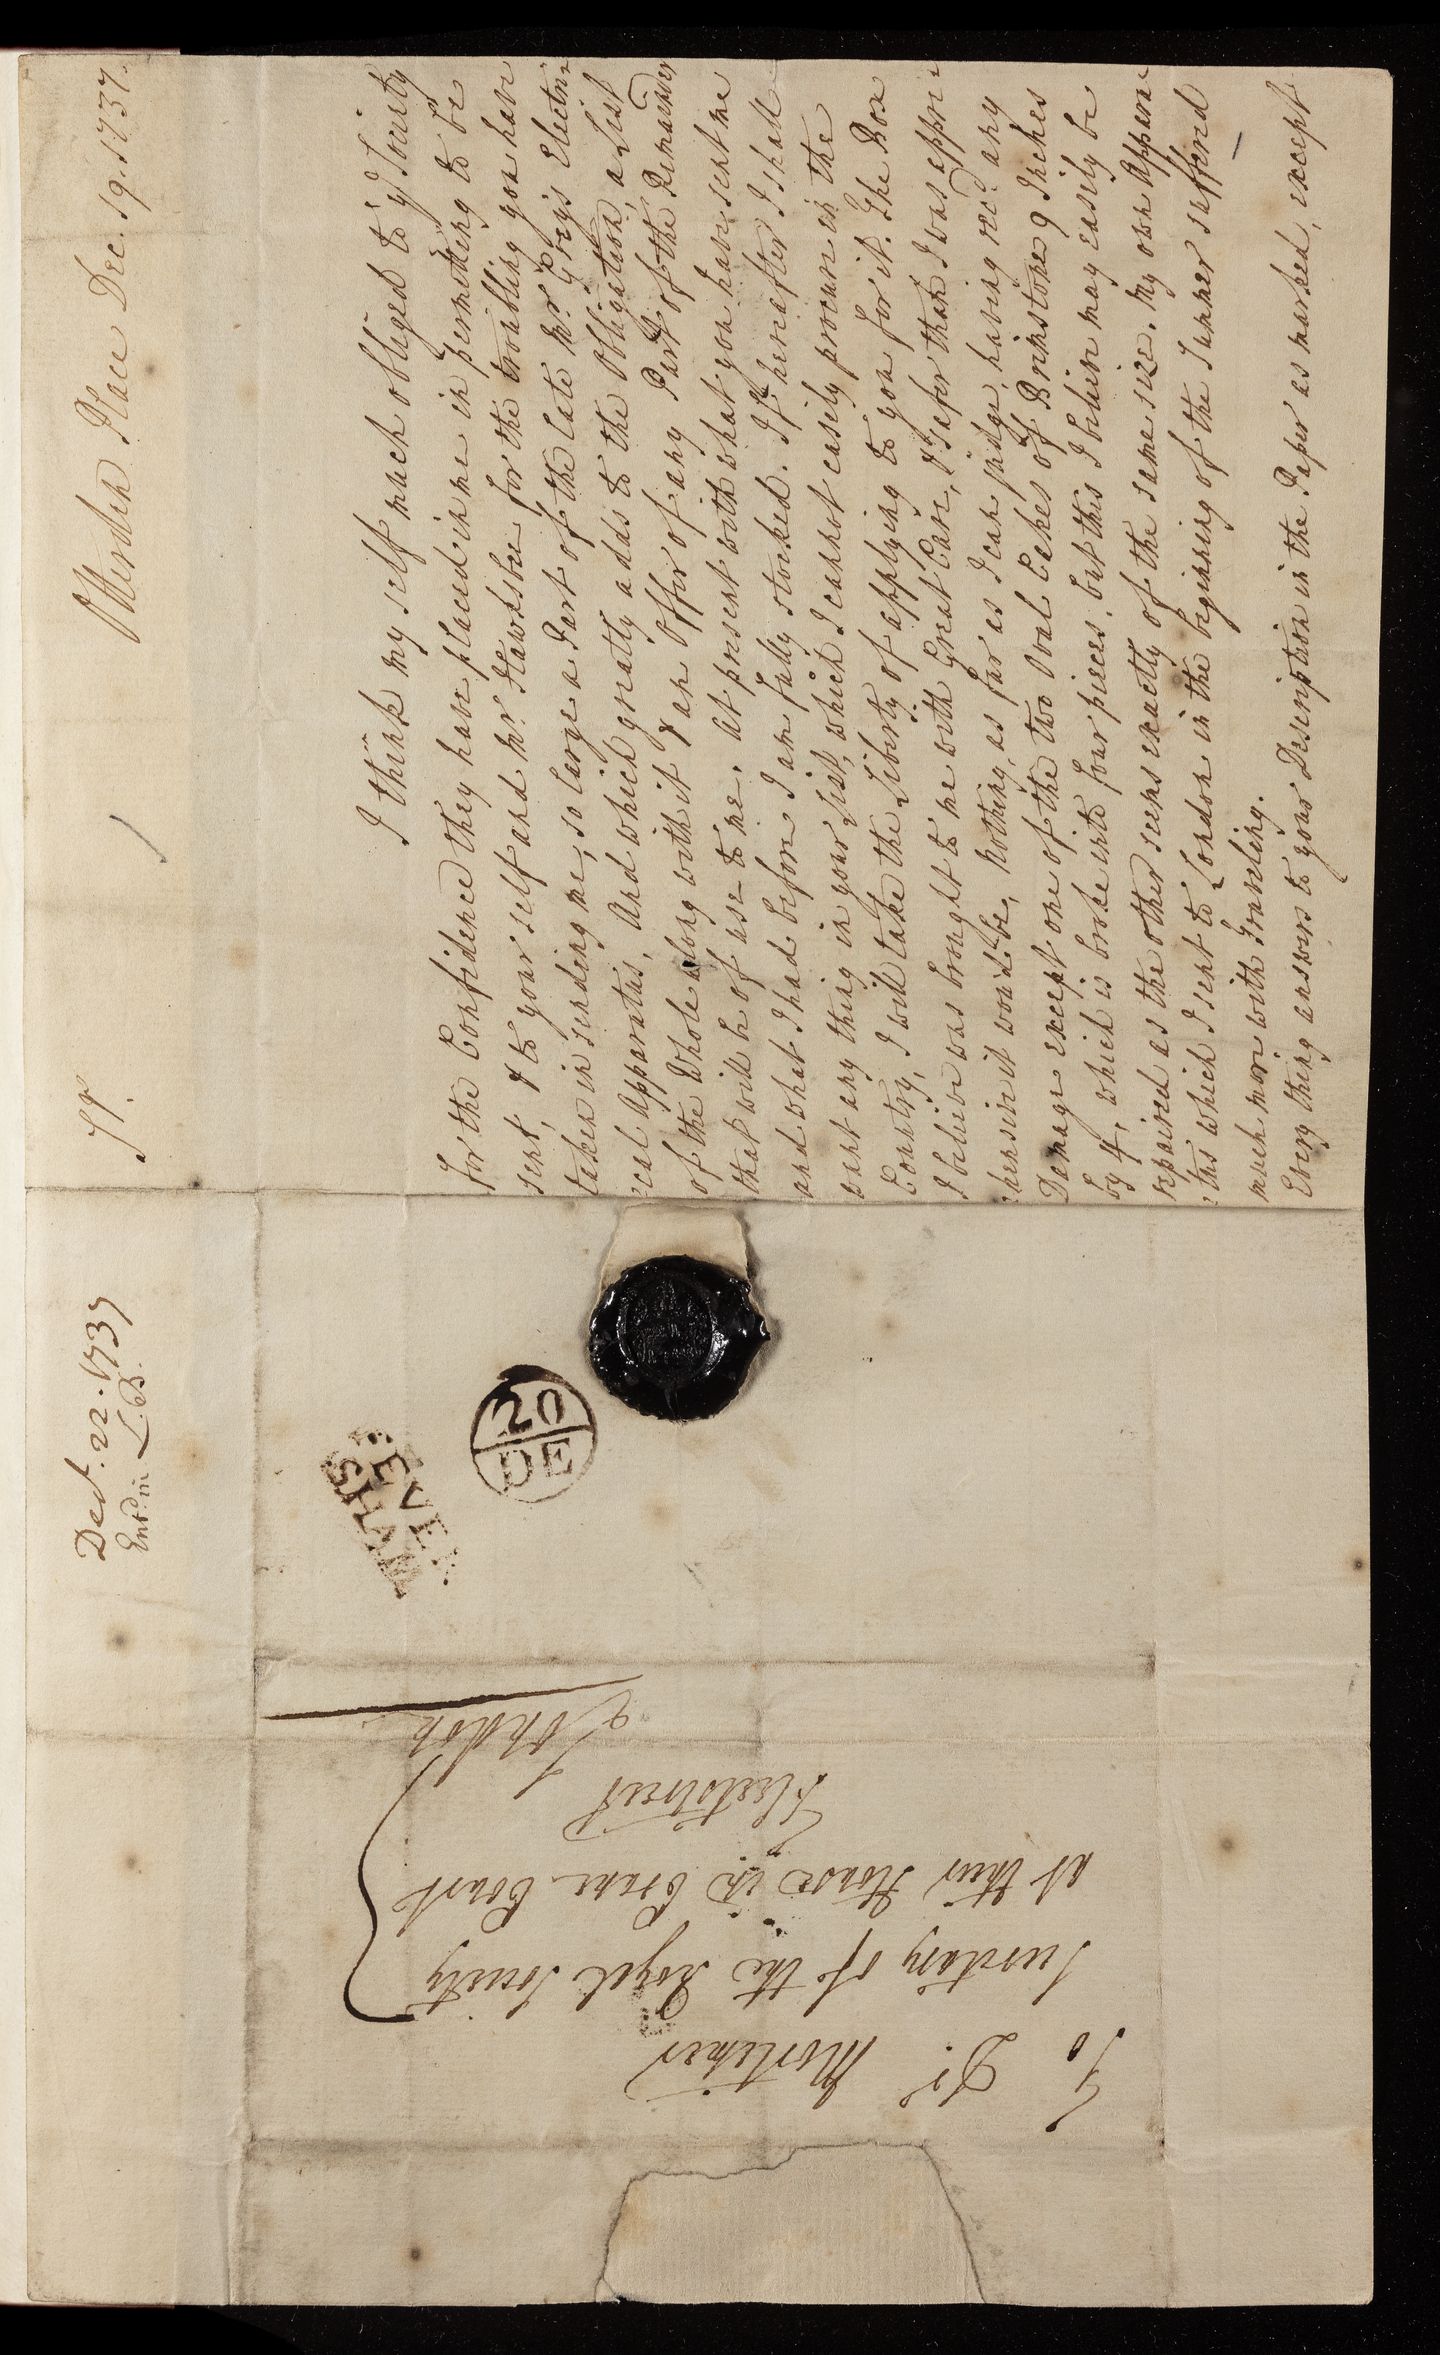 Otterden Place Dec. 19. 1737.
Sr.
I think my self much obliged to ye Society
for the Confidence they have placed in me in permitting to be
sent, & to your self and Mr. Hawksbee for the trouble you have
taken in sending me, so large a Part of the late Mr. Grey's Electri=
=cal Apparatus, And which greatly adds to the Obligation, a List
of the Whole along with it & an Offer of any Part of the Remainder
that will be of use to me. At present with what you have sent me
and what I had before I am fully stocked. If hereafter I shall
want any thing in your List, which I cannot easily procure in the
Country, I will take the Liberty of applying to you for it. The Box
I believe was brought to me with Great Care, & safer than I was appre=
=hensive it would be, nothing, as far as I can judge, having recd. any
Damage except one of the two Oval Cakes of Brimstone 9 Inches
by 4, which is broke into four pieces, but this I believe may easily be
repaired as the other seems exactly of the same size. My own Appara=
=tus which I sent to London in the beginning of the Summer suffered
much more with Traveling.
Every thing answers to your Description in the Paper as marked, except
Dec. 22. 1737
Entd. in L.B.
20
DE
FEVER
SHAM
To Dr. Mortimer
Secretary of the Royal Society
at their House in Crane Court
Fleetstreet
London